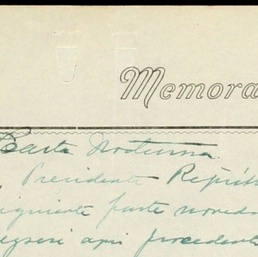 Memora
Carta Nocturna.
Presidente Repúb
siguiente parte noved
egresé aquí procedente